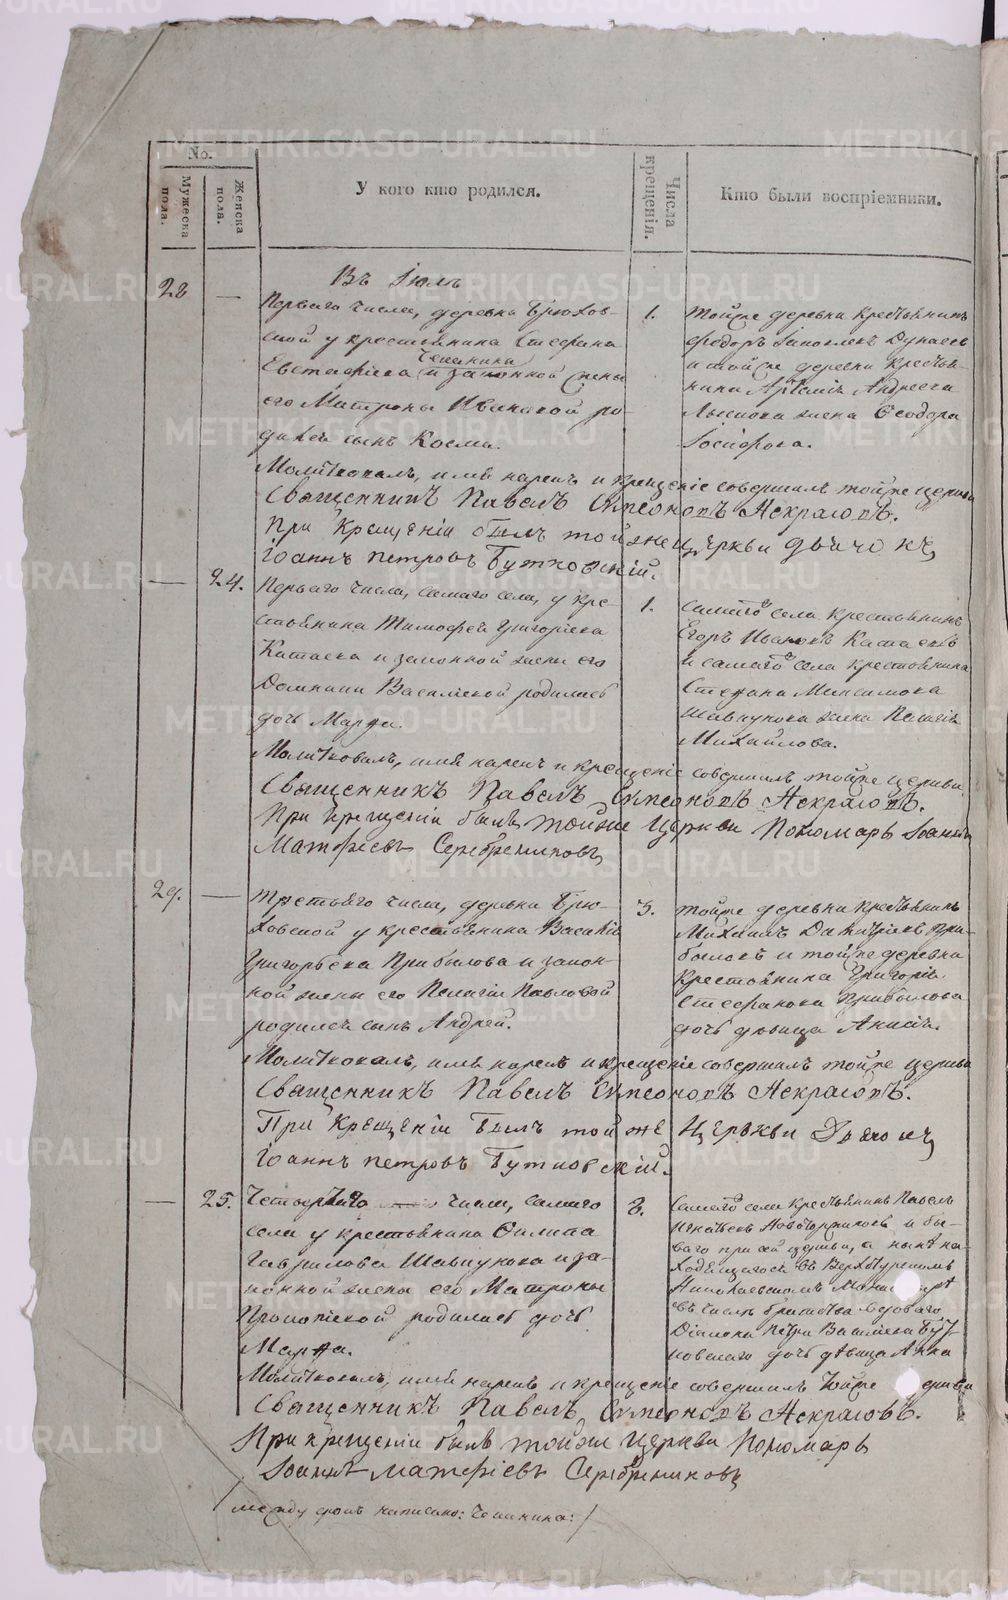 No.
Мужеска пола.
Женска пола.
У кого кто родился.
Числа крещенія.
Кто были воспріемники.
Въ Іюлѣ
28
—
Перваго числа, деревни Брюхов-
ской у крестьянина Стефана
Чепчнина
Евстафіева и законной жены
его Матроны Ивановой ро-
дился сынъ Косма.
1.
Тойже деревни крестьянинъ
Ѳедоръ Дунаевъ
и тойже деревни крестья-
нина Андреева
жена Ѳеодора
Іосифова.
Молитвовалъ, имя нарекъ и крещеніе совершилъ тойже церкви
Священникъ Павелъ Симеоновъ Некрасовъ.
При крещеніи былъ тойже церкви дьячокъ
Іоаннъ Петровъ Бутковскій.
—
24.
Перваго числа, самаго села, у кре-
стьянина Тимофея Григоріева
Катаева и законной жены его
Домники Васильевой родилась
дочь Марфа.
1.
Самаго села крестьянинъ
Егоръ Ивановъ Катаевъ
и самаго села крестьянина
Стефана Максимова
Шавкунова жена Пелагія
Михайлова.
Молитвовалъ, имя нарекъ и крещеніе совершилъ тойже церкви
Священникъ Павелъ Симеоновъ Некрасовъ.
При крещеніи былъ тойже церкви пономарь Іоаннъ
Матфіевъ Серебрениковъ
29.
—
Третьяго числа, деревни Брю-
ховской у крестьянина Василія
Григорьева Прибылова и закон-
ной жены его Пелагіи Павловой
родился сынъ Андрей.
3.
Тойже деревни крестьянинъ
Михаилъ Димитріевъ При-
быловъ и тойже деревни
крестьянина Григорія
Стефанова Прибылова
дочь дѣвица Анисія.
Молитвовалъ, имя нарекъ и крещеніе совершилъ тойже церкви
Священникъ Павелъ Симеоновъ Некрасовъ.
При крещеніи былъ тойже церкви дьячокъ
Іоаннъ Петровъ Бутковскій.
—
25.
Четвертаго числа, самаго
села у крестьянина
Гаврилова Шавкунова и за-
конной жены его Матроны
Прокопіевой родилась дочь
Марфа.
Самаго села крестьянинъ Павелъ
Игнатьевъ Новоторжиловъ и бы-
ваго при сей церкви, а нынѣ на-
ходящагося въ Верхотурскомъ
Николаевскомъ
въ числѣ братства вдоваго
Діакона Петра Васильева Бут-
ковскаго дочь дѣвица Анна
Молитвовалъ, имя нарекъ и крещеніе совершилъ тойже церкви
Священникъ Павелъ Симеоновъ Некрасовъ.
При крещеніи былъ тойже церкви пономарь
Іоаннъ Матфіевъ Серебрениковъ
METRIKI.GASO-URAL.RU